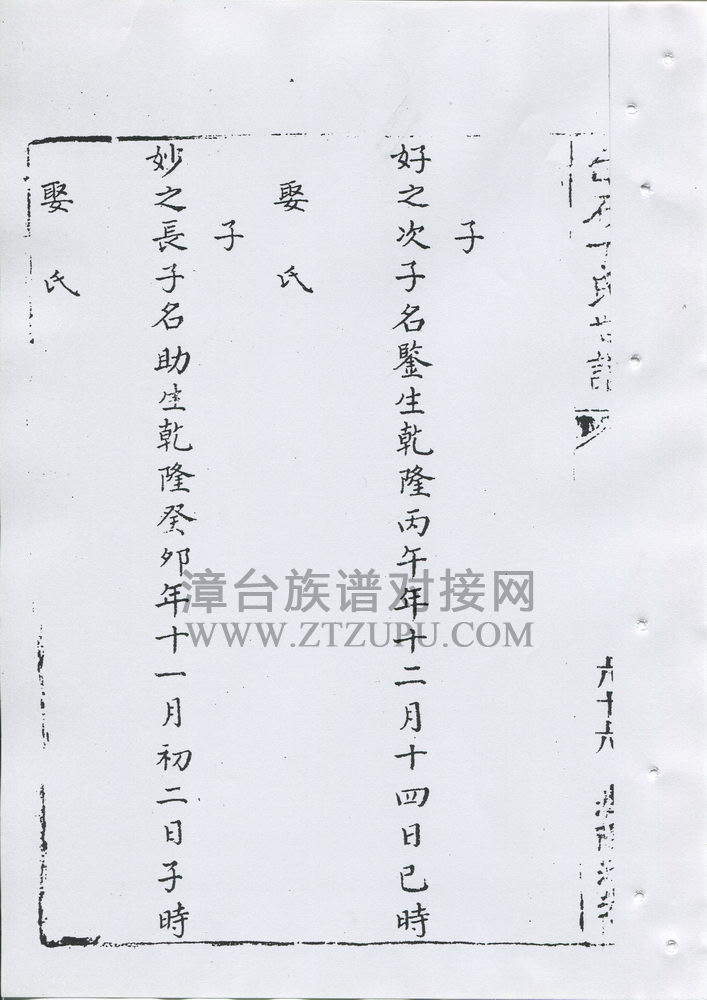 六十六
子
好之次子名鑒生乾隆丙午年十二月十四日巳時
娶 氏
子
妙之長子名助生乾隆癸卯年十一月初二日子時
娶 氏
漳台族谱对接网
WWW.ZTZUPU.COM